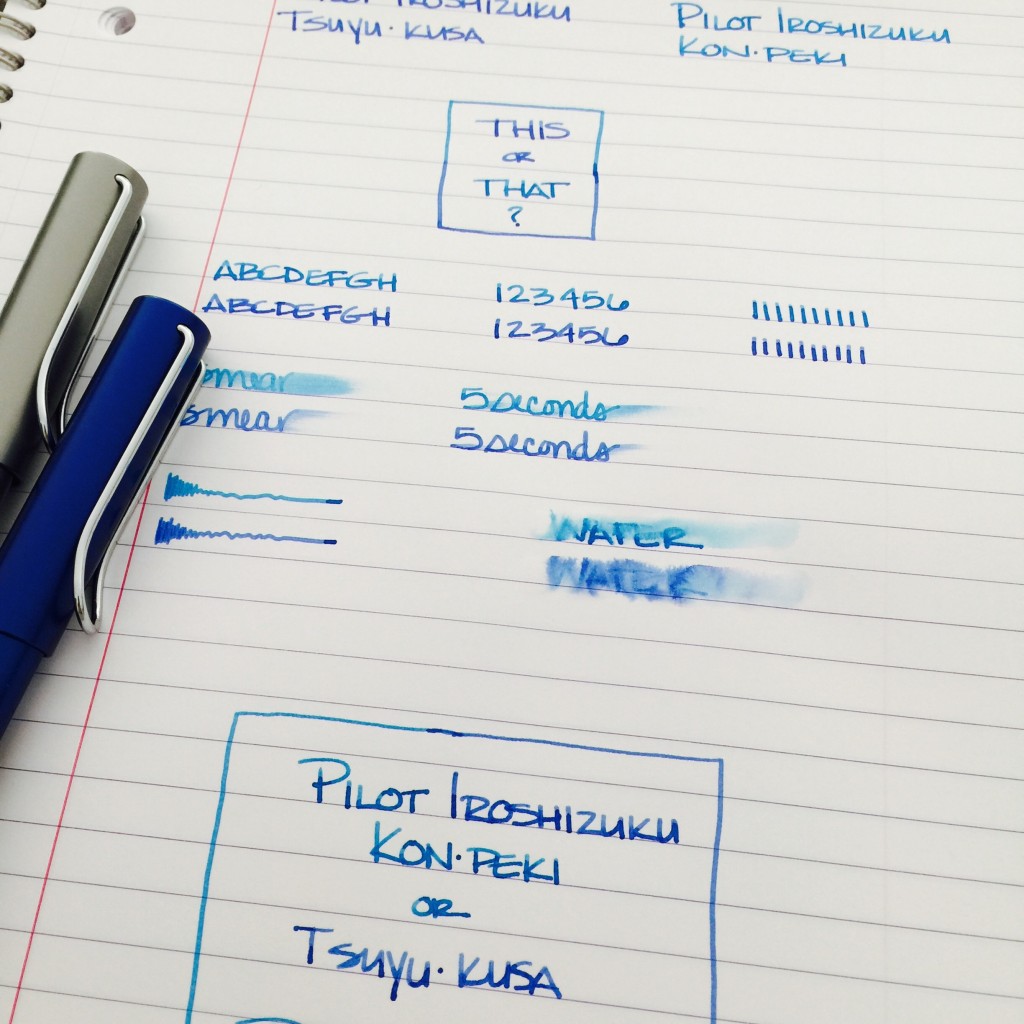 PILOT IROSHIZUKU
TSUYU·KUSA
PILOT IROSHIZUKU
KON·PEKI
THIS
OR
THAT
?
ABCDEFGH 123456
ABCDEFGH 123456
smear 5 seconds
smear 5 seconds
WATER
WATER
PILOT IROSHIZUKU
KON·PEKI
OR
TSUYU·KUSA